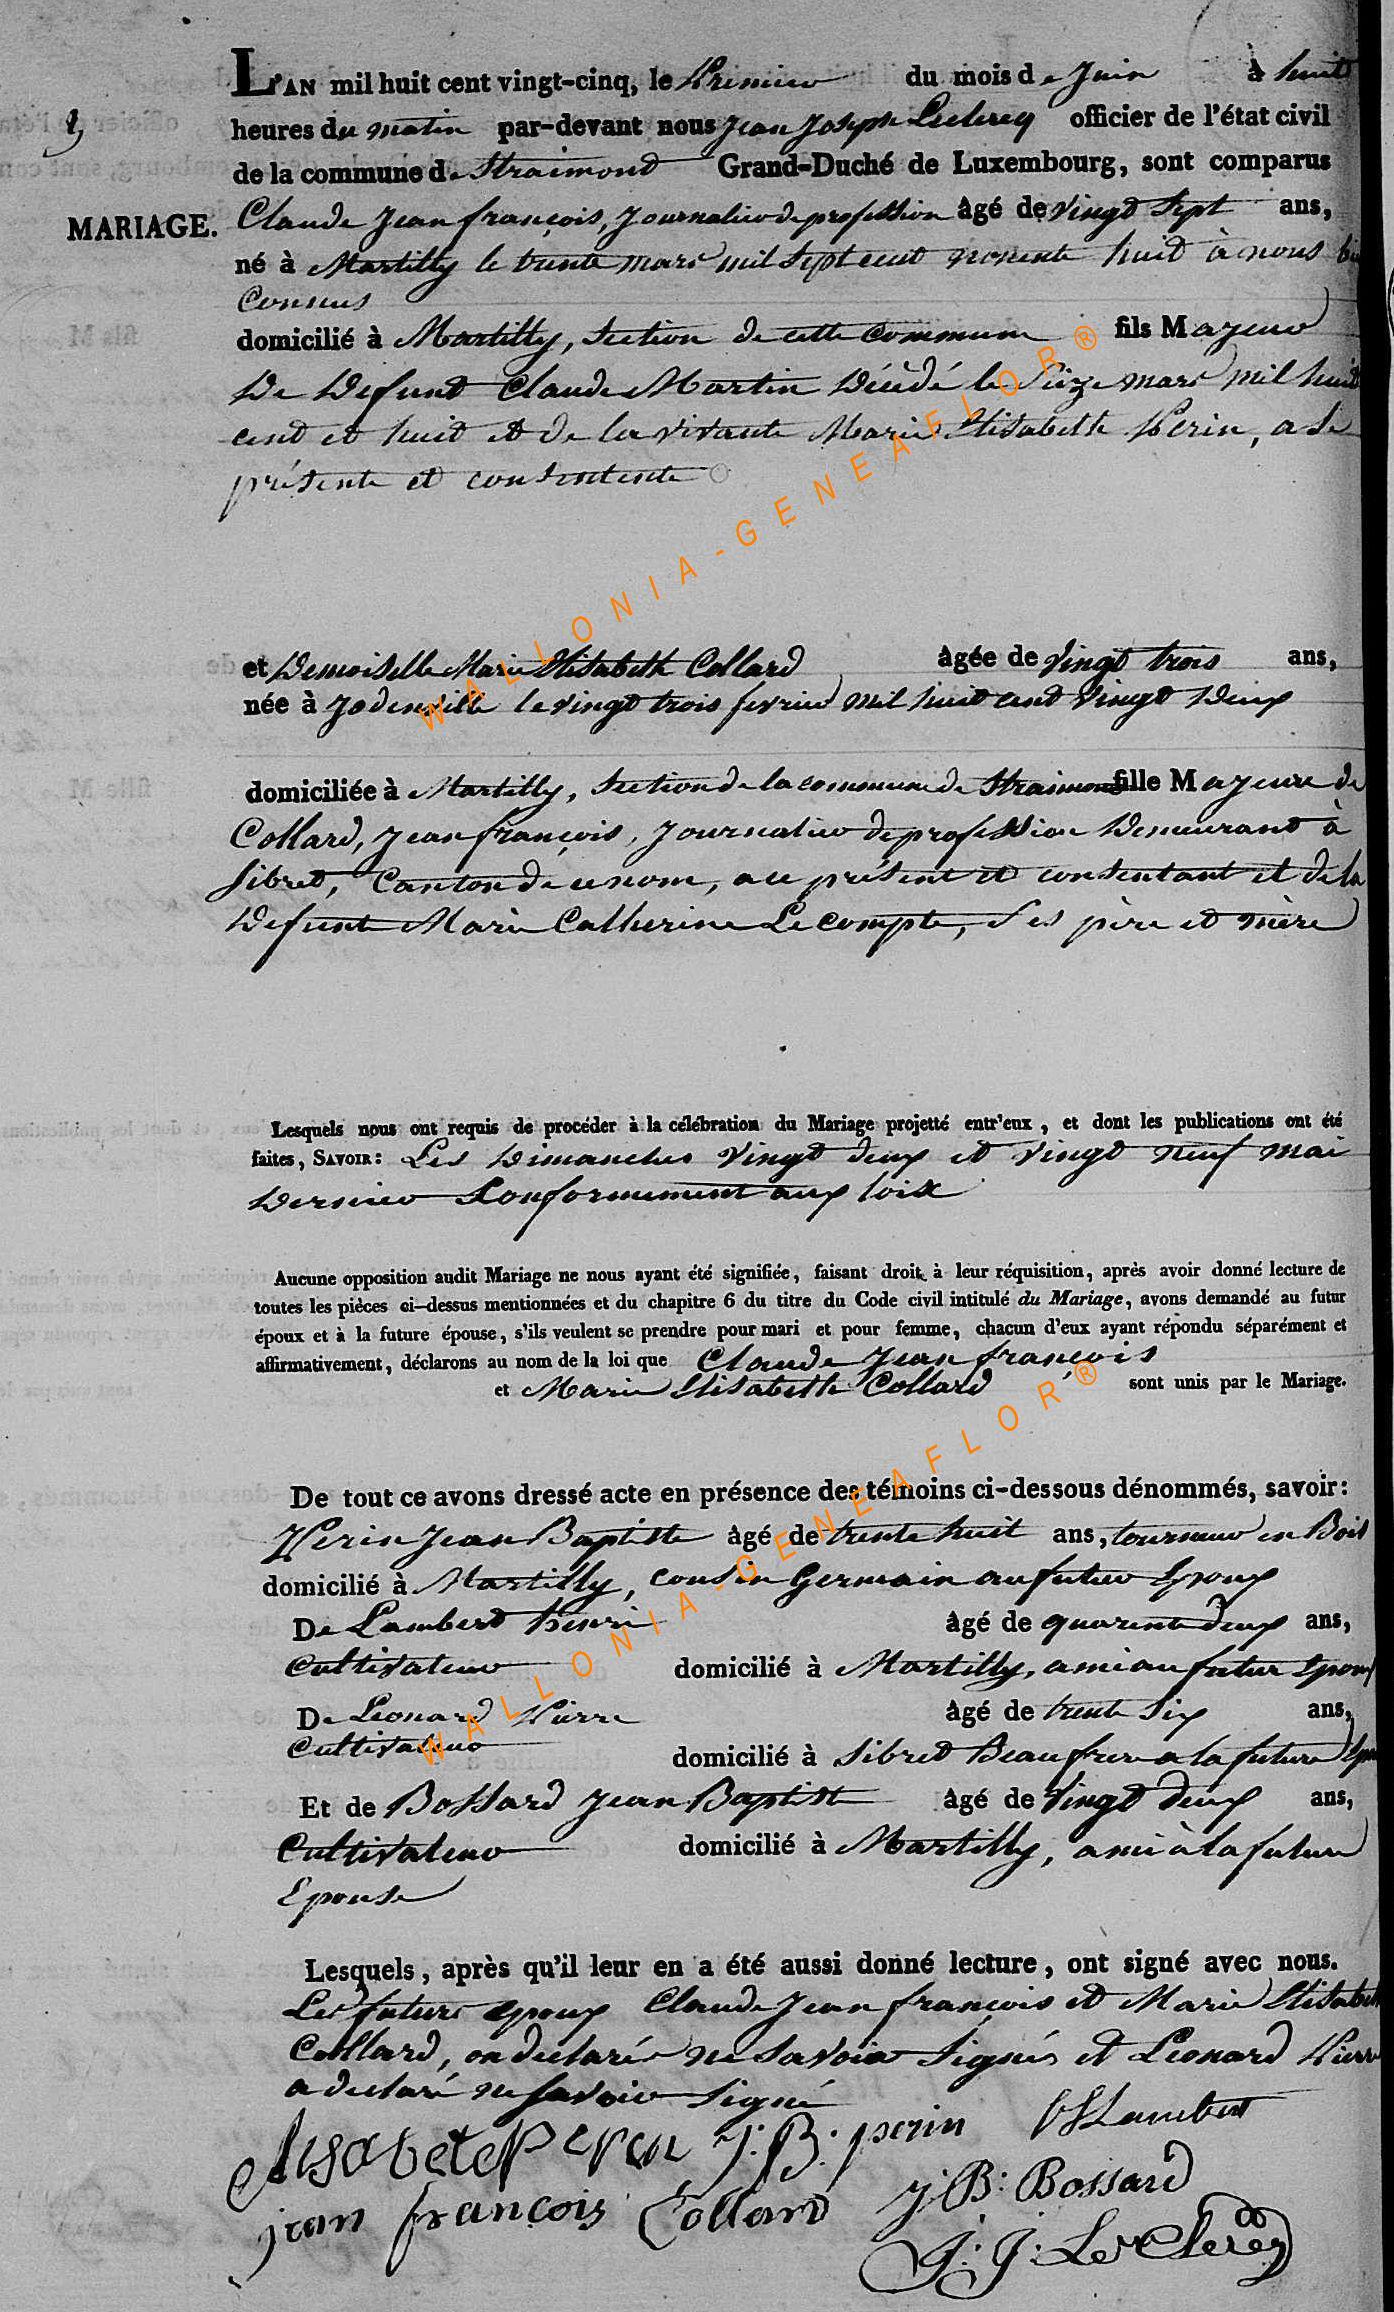 L'AN mil huit cent vingt-cinq, le Premier du mois de Juin à huit
heures du matin par-devant nous Jean Joseph Leclercq officier de l'état civil
de la commune de Straimont Grand-Duché de Luxembourg, sont comparus
MARIAGE.
Claude Jean françois, Journalier de profession âgé de vingt sept ans,
né à Martilly le trente mars mil sept cent nonente huit à nous
Connus
domicilié à Martilly, Section de cette commune fils Majeur
De Defunt Claude Martin Décédé le Seize mars mil huit
cent et huit et de la vivante Marie Elisabeth Perin, a Se
présente et consentente
et Demoiselle Marie Elisabeth Collard âgée de vingt trois ans,
née à Jodenville le vingt trois fevrier mil huit cent vingt Deux
domiciliée à Martilly, Section de la commune de Straimont fille Majeure de
Collard, Jean françois, Journalier de profession Demeurant à
Sibret, Canton de ce nom, a ce présent et consentant et de la
Defunte Marie Catherine Lecompte, Ses père et mère
Lesquels nous ont requis de procéder à la célébration du Mariage projetté entr'eux, et dont les publications ont été
faites, SAVOIR: Les Dimanches vingt deux et vingt neuf mai
Dernier Conformement aux loix
Aucune opposition audit Mariage ne nous ayant été signifiée, faisant droit à leur réquisition, après avoir donné lecture de
toutes les pièces ci-dessus mentionnées et du chapitre 6 du titre du Code civil intitulé du Mariage, avons demandé au futur
époux et à la future épouse, s'ils veulent se prendre pour mari et pour femme, chacun d'eux ayant répondu séparément et
affirmativement, déclarons au nom de la loi que Claude Jean françois
et Marie Elisabeth Collard sont unis par le Mariage.
De tout ce avons dressé acte en présence des témoins ci-dessous dénommés, savoir:
Perin Jean Baptiste âgé de trente huit ans, tourneur en Bois
domicilié à Martilly, cousin Germain au futur Epoux
De Lambert henri âgé de quarente deux ans,
Cultivateur domicilié à Martilly, ami au futur Epoux
De Leonard Pierre âgé de trente Six ans,
Cultivateur domicilié à Sibret Beaufrere a la future
Et de Bossard Jean Baptiste âgé de vingt deux ans,
Cultivateur domicilié à Martilly, ami à la future
Epouse
Lesquels, après qu'il leur en a été aussi donné lecture, ont signé avec nous.
Les futurs epoux Claude Jean françois et Marie Elisabeth
Collard, on declarés ne savoir Signés et Leonard Pierre
a declaré ne Savoir Signé
Elisabete Perin J: B: perin Lambert
jean françois Collard J: B: Bossard
J: J: Leclercq
WALLONIA-GENEAFLOR®
WALLONIA-GENEAFLOR®